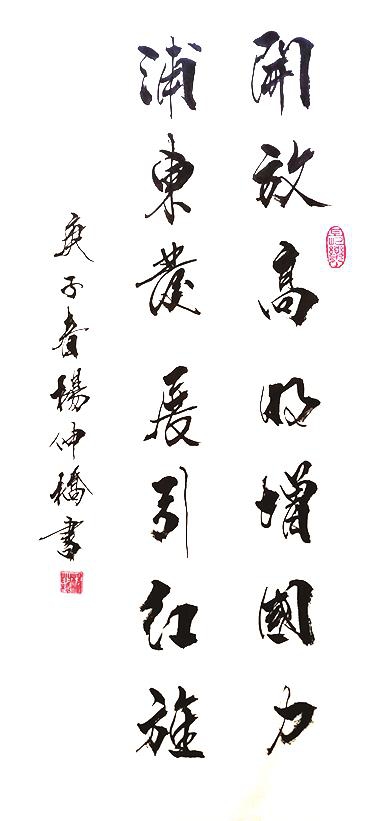 開放高明增國力
浦東發展引紅旌
庚子春楊仲橋書